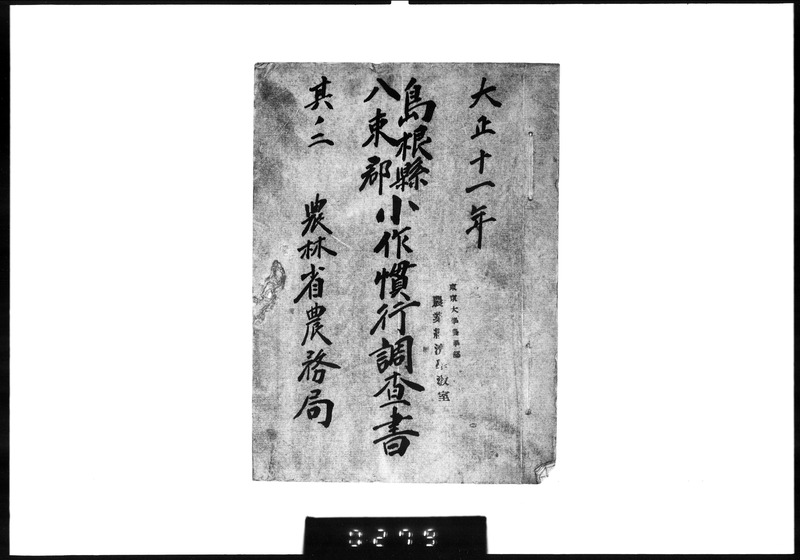 大正十一年
島根縣
八束郡
小作慣行調査書
其ノ二
農林省農務局
東京大学農学部
農業経済学教室
0279